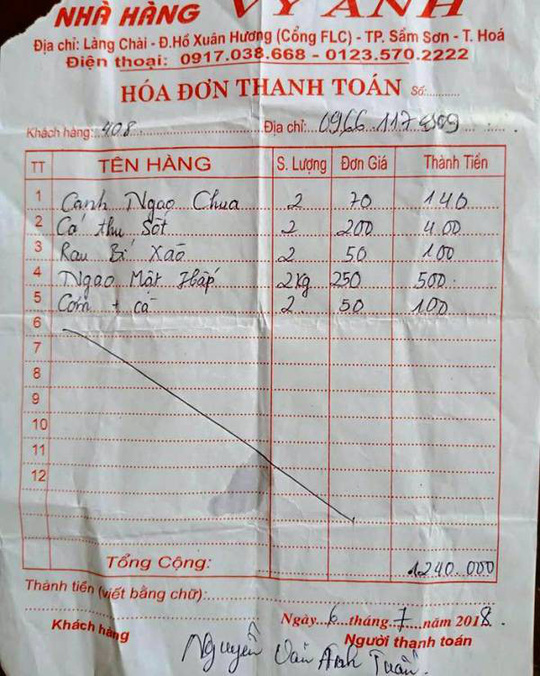 NHÀ HÀNG VY ANH
Địa chỉ: Làng Chài - Đ.Hồ Xuân Hương (Cổng FLC) - TP. Sầm Sơn - T. Hoá
Điện thoại: 0917.038.668 - 0123.570.2222
HÓA ĐƠN THANH TOÁN Số:
Khách hàng: 408 Địa chỉ: 0966 117
TT TÊN HÀNG S. Lượng Đơn Giá Thành Tiền
1 Canh Ngao Chua 2 70 140
2 Cá thu Sốt 2 200 400
3 Rau Bí Xào 2 50 100
4 Ngao Mật Hấp 2kg 250 500
5 Cơm + cà 2 50 100
6
7
8
9
10
11
12
Tổng Cộng: 1.240.000
Thành tiền (viết bằng chữ):
Ngày 6 tháng 7 năm 2018.
Khách hàng Người thanh toán
Nguyễn Văn Anh Tuấn